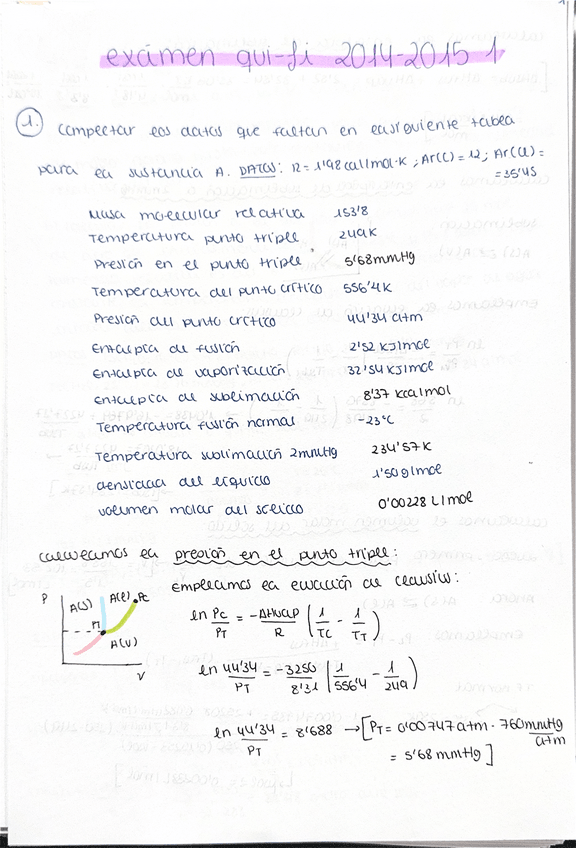 exámen qui-fi 2014-2015 1
1. Completar los datos que faltan en la siguiente tabla
para la sustancia A. DATOS: R=1'98 cal/mol·K ; Ar(C)=12; Ar(Cl)=
=35'45
Masa molecular relativa 153'8
Temperatura punto triple 249K
Presión en el punto triple 5'68mmHg
Temperatura del punto crítico 556'4K
Presión del punto crítico 44'34 atm
Entalpía de fusión 2'52 KJ/mol
Entalpía de vaporización 32'54 KJ/mol
Entalpía de sublimación 8'37 kcal/mol
Temperatura fusión normal -23ºC
Temperatura sublimación 2mmHg 234'57K
densidad del líquido 1'50 g/mol
volumen molar del sólido 0'00228 L/mol
calculamos la presión en el punto triple:
Empleamos la ecuación de Clausius:
P A(S) A(l) Pc
PT
A(V)
V
ln Pc/PT = -ΔHvap/R (1/TC - 1/TT)
ln 44'34/PT = -3250/8'31 (1/556'4 - 1/249)
ln 44'34/PT = 8'688 → [PT = 0'00747 atm · 760 mmHg/atm
= 5'68 mmHg]